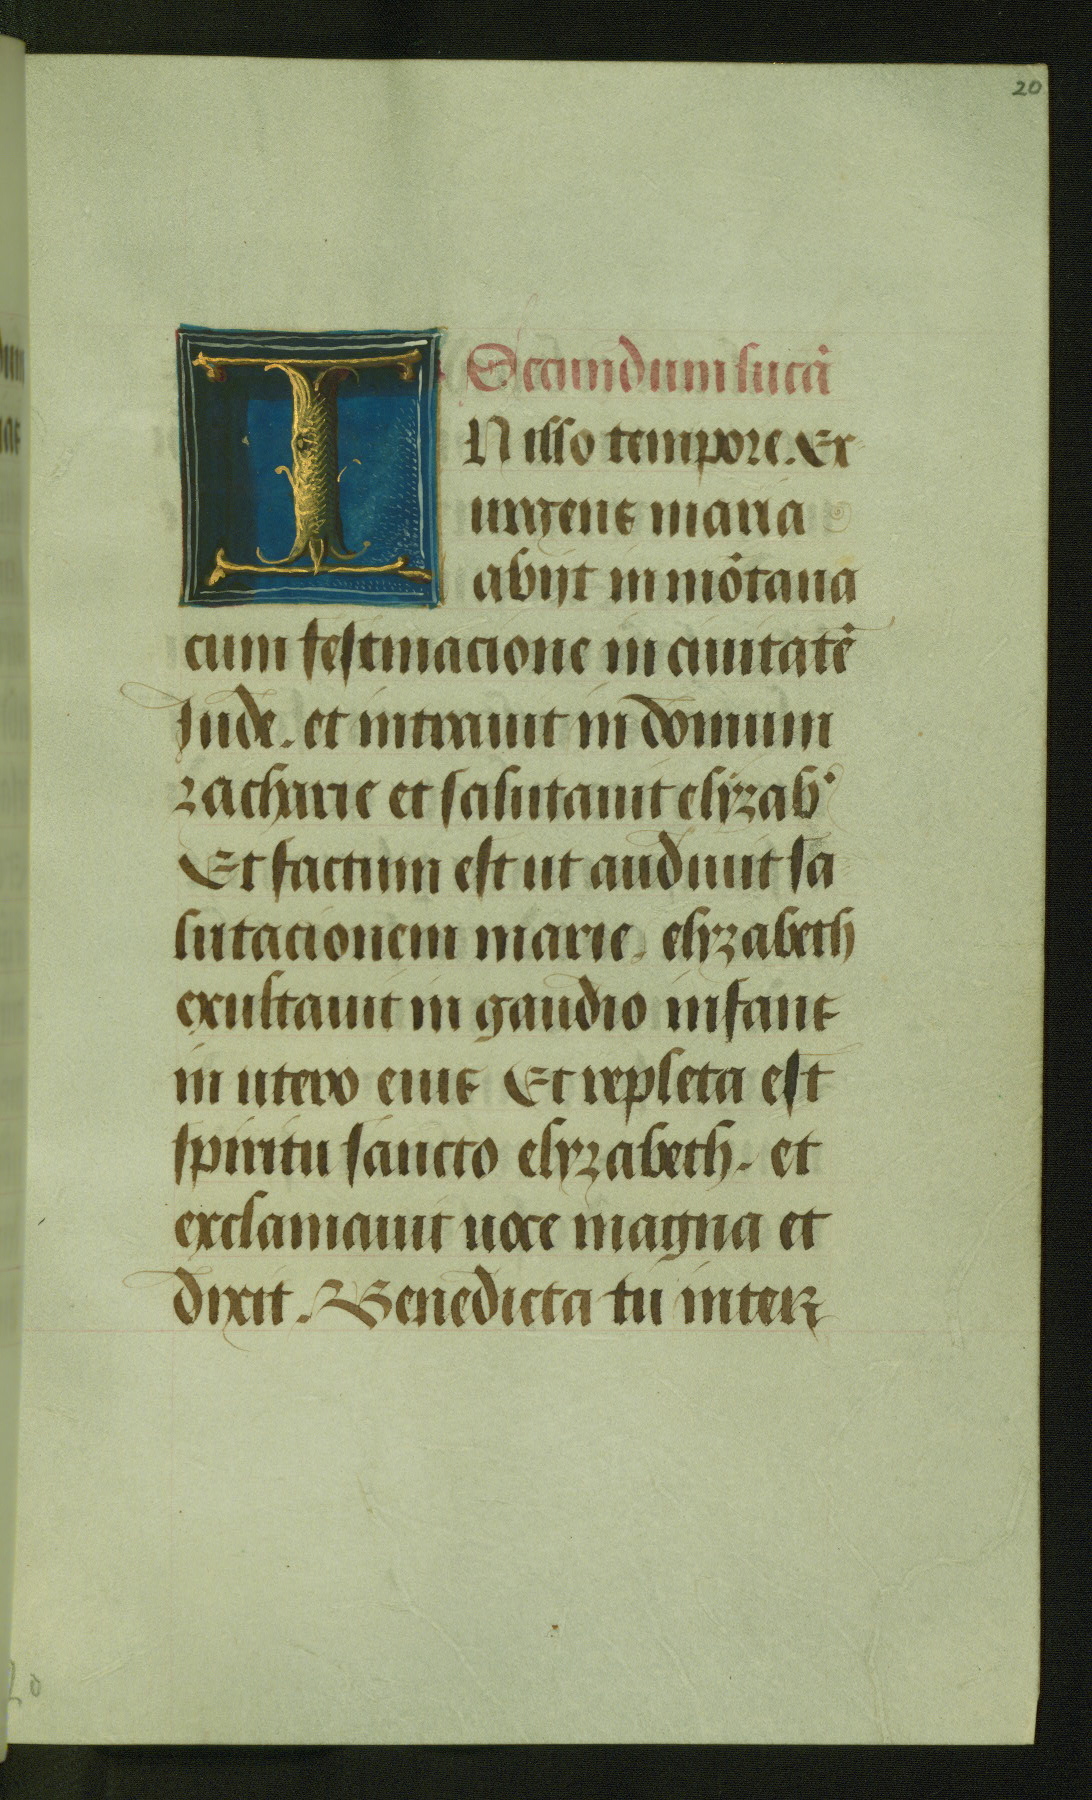 20
Secundum lucā
IN illo tempore. Ex
urgens maria
abijt in mōtana
cum festinacione in ciuitatē
Jude. et intrauit in domum
zacharie et salutauit elyzab'
Et factum est ut audiuit sa
lutacionem marie. elyzabeth
exultauit in gaudio infans
in utero eius Et repleta est
spiritu sancto elyzabeth. et
exclamauit uoce magna et
dixit. Benedicta tu inter